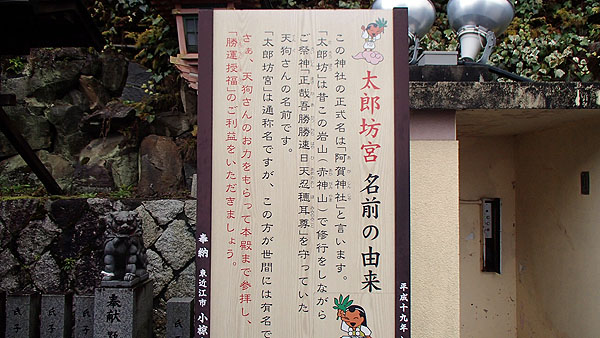 太郎坊宮 名前の由来
この神社の正式名は「阿賀神社」と言います。
「太郎坊」は昔この岩山（赤神山）で修行をしながら
ご祭神「正哉吾勝勝速日天忍穂耳尊」を守っていた
天狗さんの名前です。
「太郎坊宮」は通称名ですが、この方が世間には有名で
さぁ、天狗さんのお力をもらって本殿まで参拝し、
「勝運授福」のご利益をいただきましょう。
平成十九年
奉納 東近江市 小椋
奉献
氏子
氏子
氏子
氏